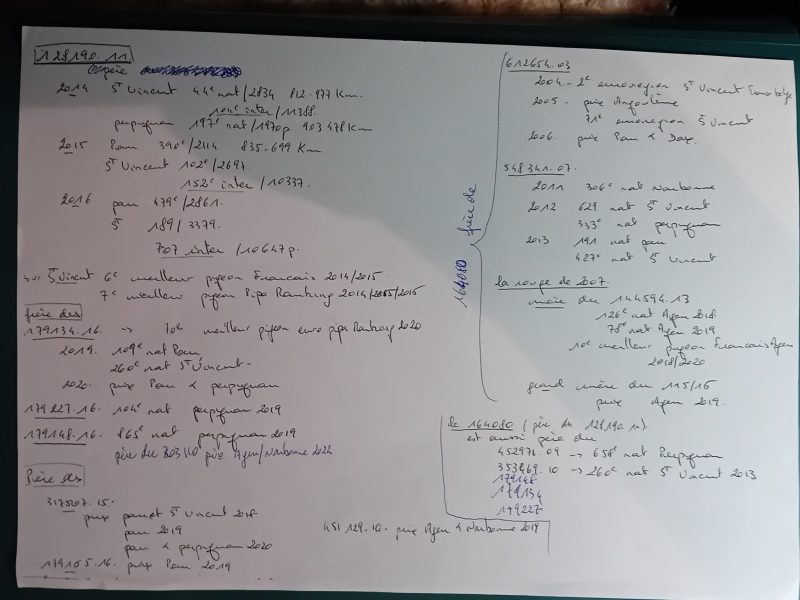 128190.11
père
2014 St Vincent 44e nat/2834 812.977 Km.
104e inter/11388.
perpignan 197e nat/1970p 903 478 Km
2015 Pau 390e/2114 835.699 Km
St Vincent 102e/2697.
152e inter/10337.
2016 pau 479e/2861.
St 189/3379.
707 inter/10647p.
sur St Vincent 6e meilleur pigeon Francais 2014/2015
7e meilleur pigeon Pipa Ranking 2014/2015/2016
frère des
179134.16. -> 10e meilleur pigeon euro pipa Ranking 2020
2019. 109e nat Pau
260e nat St Vincent.
2020. prix Pau & perpignan
179227.16. 104e nat perpignan 2019
179148.16. 865e nat perpignan 2019
père du prix Agen/Narbonne 2024
Père des
317507.15.
prix pau et St Vincent 2018.
pau 2019
pau & perpignan 2020
179165.16. prix Pau 2019
164080 frère de
612654.03
2004 - 2e St Vincent
2005 - prix Angoulème
71e St Vincent
2006. prix Pau & Dax.
548341.07.
2011 306e nat Narbonne
2012 629 nat St Vincent
333e nat perpignan
2013 191 nat pau
427e nat St Vincent
la rouge de 2007
mère du 144594.13
126e nat Agen 2018
78e nat Agen 2019
10e meilleur pigeon Francais Agen
2018/2020
grand mère du 115/16
prix Agen 2019.
le 164080 (père du 128190.11)
est aussi père du
452971.09 -> 658e nat Perpignan
353469.10 -> 260e nat St Vincent 2013
179148
179134
179227
451129.16. prix Agen & Narbonne 2019